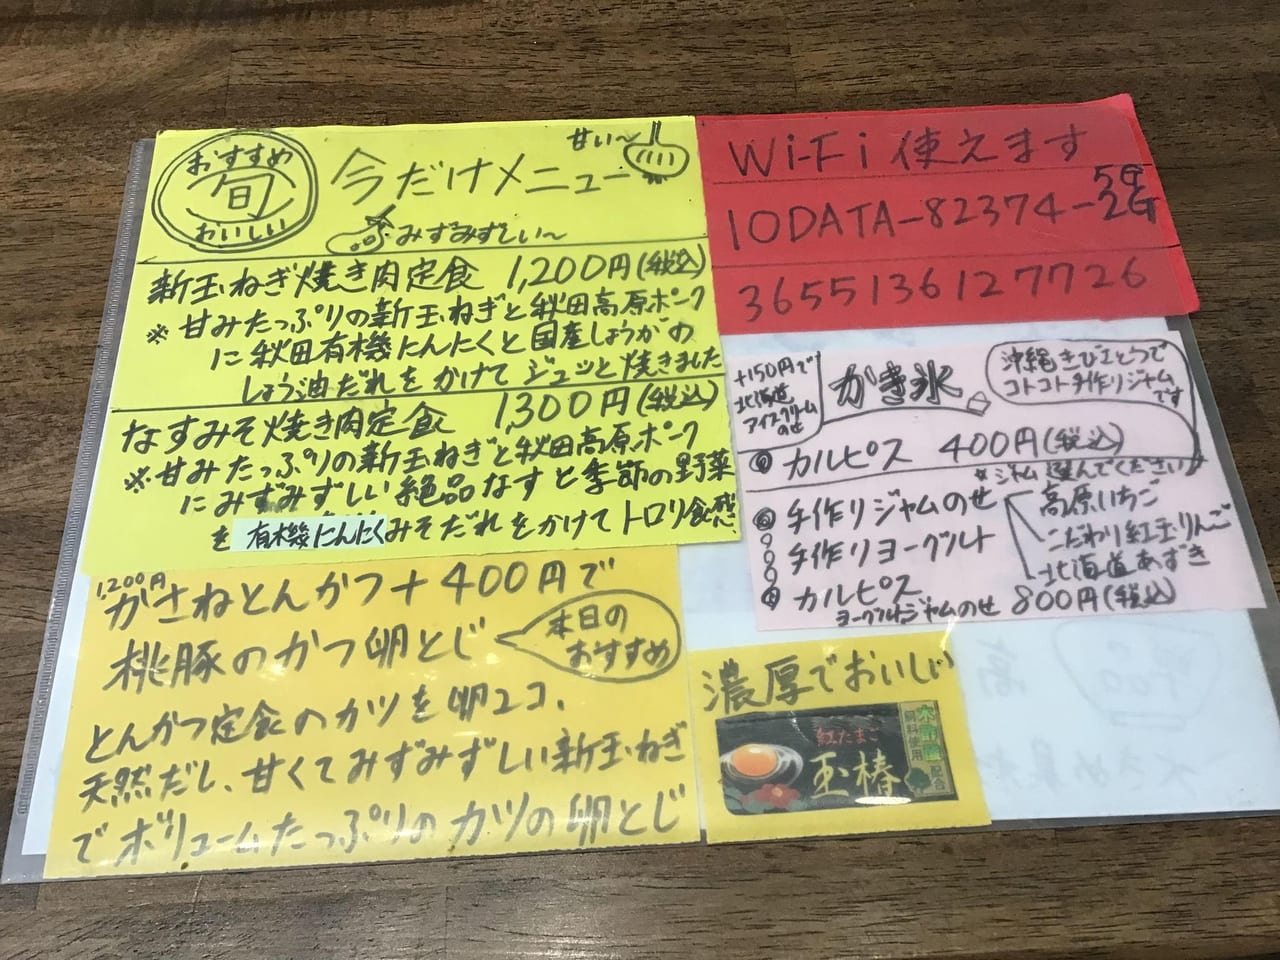 おすすめ
旬
おいしい
今だけメニュー
甘い〜
みずみずしい〜
新玉ねぎ焼き肉定食 1,200円(税込)
※甘みたっぷりの新玉ねぎと秋田高原ポーク
に秋田有機にんにくと国産しょうがの
しょう油だれをかけてジュッと焼きました
なすみそ焼き肉定食 1,300円(税込)
※甘みたっぷりの新玉ねぎと秋田高原ポーク
にみずみずしい絶品なすと季節の野菜
を有機にんにくみそだれをかけてトロリ食感
1,200円
かさねとんかつ+400円で
桃豚のかつ卵とじ
本日の
おすすめ
とんかつ定食のカツを卵2コ、
天然だし、甘くてみずみずしい新玉ねぎ
でボリュームたっぷりのカツの卵とじ
Wi-Fi使えます
IODATA-82374-2G
5G
3655136127726
+150円で
北海道
アイスクリーム
のせ
かき氷
沖縄きびとうで
コトコト手作りジャム
です
カルピス 400円(税込)
*ジャム選んでください
手作りジャムのせ
高原いちご
こだわり紅玉りんご
北海道あずき
手作りヨーグルト
カルピス
ヨーグルトジャムのせ 800円(税込)
濃厚でおいしい
紅たまご
玉椿
木酢酸
配合
飼料使用